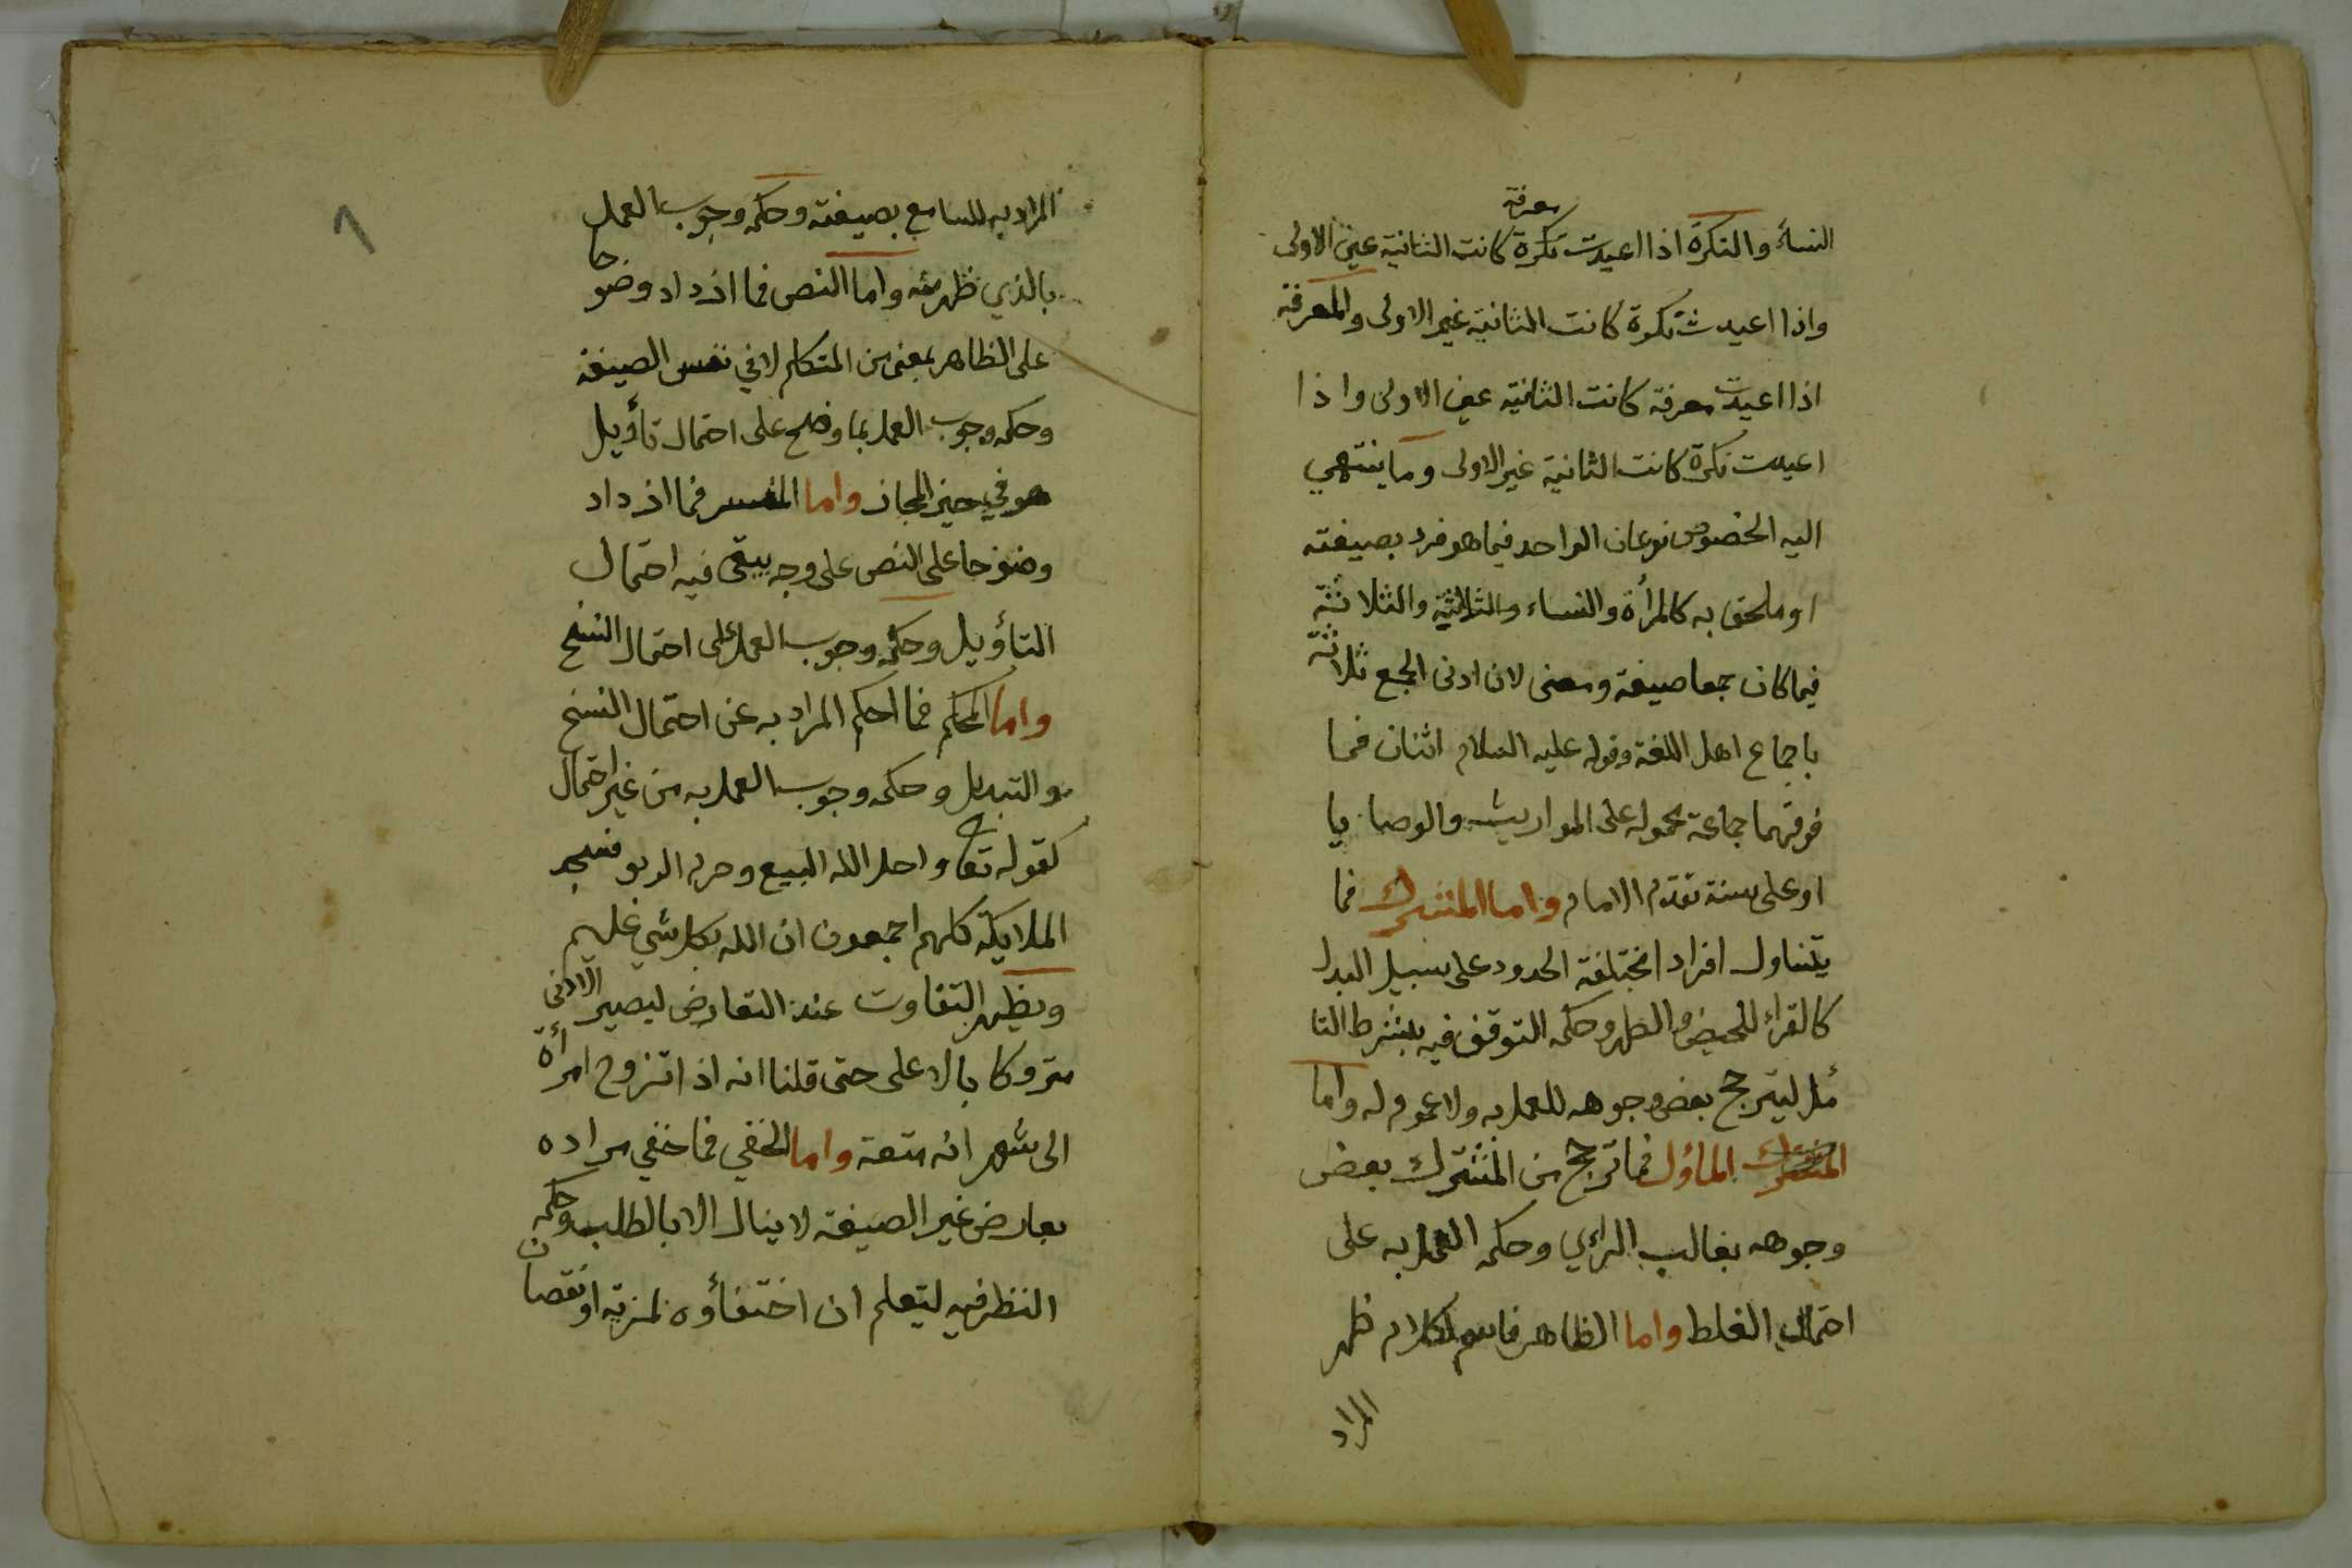 النساء والنكرة اذا اعيدت نكرة معرفة كانت الثانية عين الاولى
واذا اعيدت نكرة كانت الثانية غير الاولى والمعرفة
اذا اعيدت معرفة كانت الثانية عين الاولى واذا
اعيدت نكرة كانت الثانية غير الاولى وما ينتهي
اليه الخصوص نوعان الواحد فيما هو فرد بصيغته
او ملحق به كالمرأة والنساء والثلاثة والثلاثة
فيما كان جمعا صيغة ومعنى لان ادنى الجمع ثلاثة
باجماع اهل اللغة وقوله عليه السلام اثنان فما
فوقهما جماعة محمولة على المواريث والوصايا
او على سنة تقدم الامام واما المشترك فما
يتناول افرادا مختلفة الحدود على سبيل البدل
كالقراء للحيض والطهر وحكمه التوقف فيه بشرط التا
مل ليترجح بعض وجوهه للعمل به ولا عموم له واما
المشترك المأول فما ترجح من المشترك بعض
وجوهه بغالب الرأي وحكمه العمل به على
احتمال الغلط واما الظاهر فاسم لكلام ظهر
المراد
٨
المراد به للسامع بصيغته وحكمه وجوب العمل
بالذي ظهر منه واما النص فما ازداد وضوحا
على الظاهر بمعنى من المتكلم لا في نفس الصيغة
وحكمه وجوب العمل بما وضح على احتمال تأويل
هو في حيز المجاز واما المفسر فما ازداد
وضوحا على النص على وجه يبقى فيه احتمال
التأويل وحكمه وجوب العمل على احتمال النسخ
واما المحكم فما احكم المراد به عن احتمال النسخ
والتبديل وحكمه وجوب العمل به من غير احتمال
كقوله تعا واحل الله البيع وحرم الربو فسجد
الملايكة كلهم اجمعون ان الله بكل شي عليم
ويظهر التفاوت عند التعارض ليصير الادنى
متروكا بالاعلى حتى قلنا انه اذا تزوج امرأة
الى شهر انه متعة واما الخفي فما خفي مراده
بعارض غير الصيغة لا ينال الا بالطلب وحكمه
النظر فيه ليتعلم ان اختفأوه لمزية او نقصان